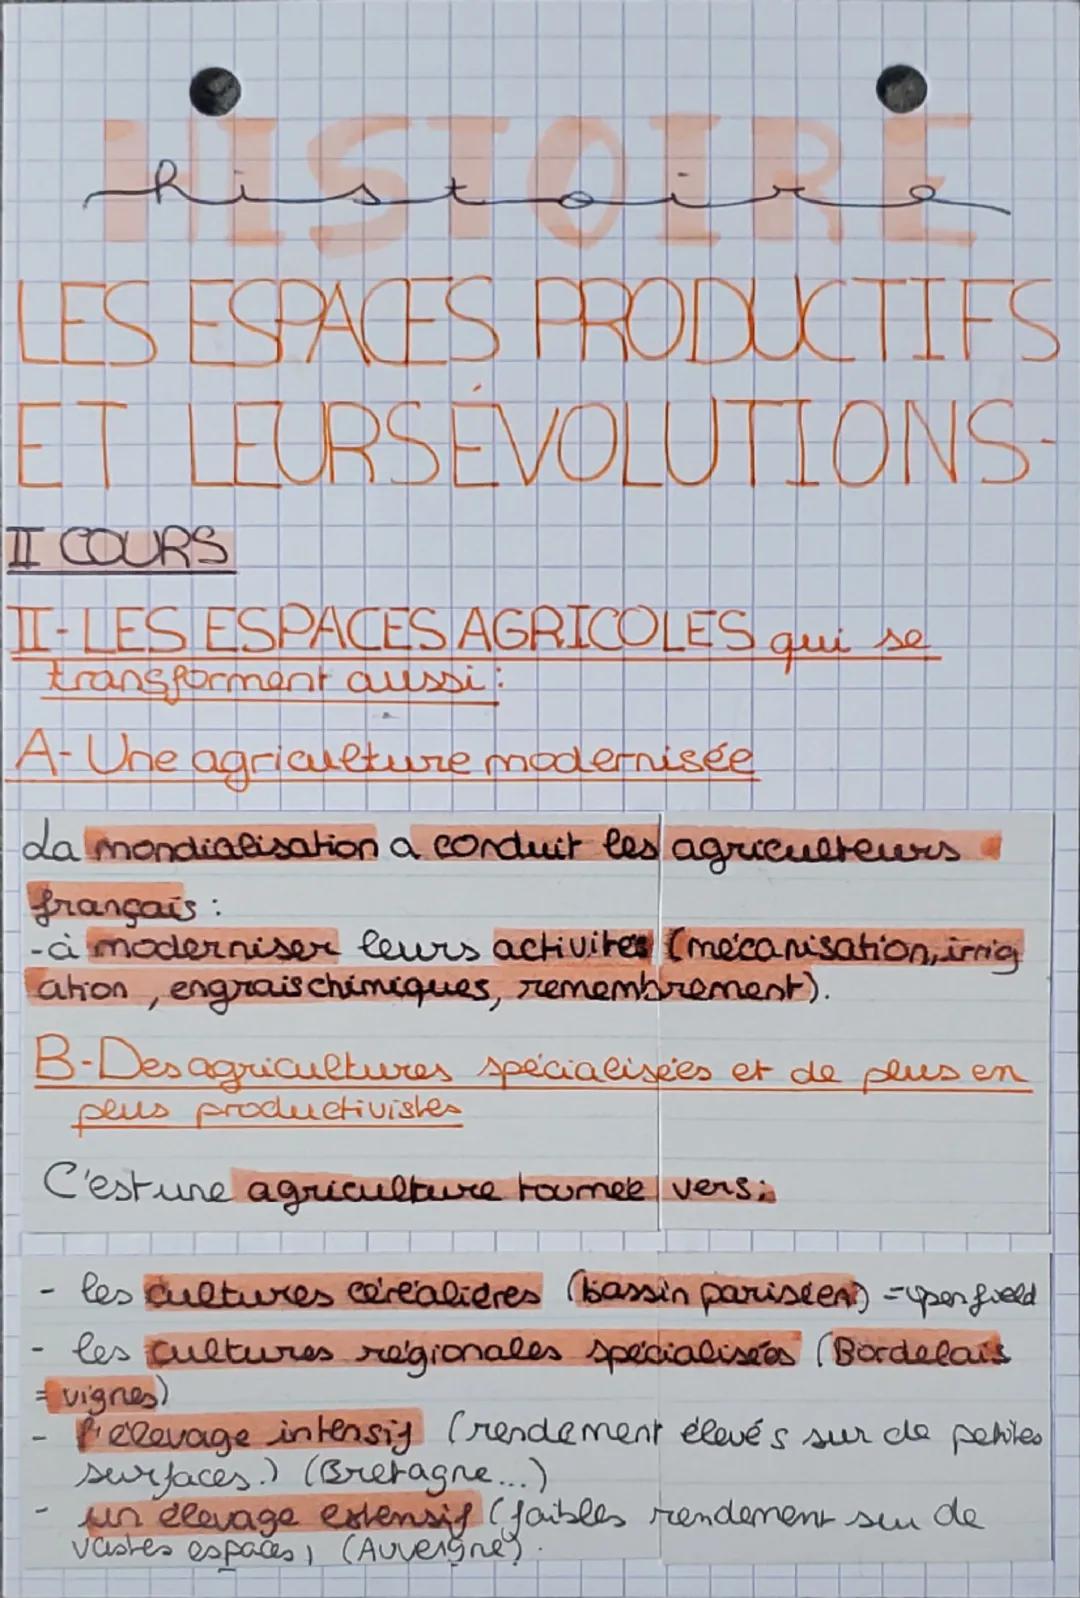 HISTOIRE
histoire
LES ESPACES PRODUCTIFS
ET LEURS ÉVOLUTIONS-
II COURS
II-LES ESPACES AGRICOLES qui se
transforment aussi:
A- Une agriculture modernisée
La mondialisation a conduit les agriculteurs
français :
-à moderniser leurs activités (mécanisation, irrig
ation, engrais chimiques, remembrement).
B-Des agricultures spécialisées et de plus en
plus productivistes
C'est une agriculture tournée vers:
- les cultures céréalières (bassin parisien) = open field
- les cultures régionales spécialisées (Bordelais
= vignes)
- l'élevage intensif (rendement élevés sur de petites
surfaces.) (Bretagne...)
- un élevage extensif (faibles rendement sur de
vastes espaces) (Auvergne).